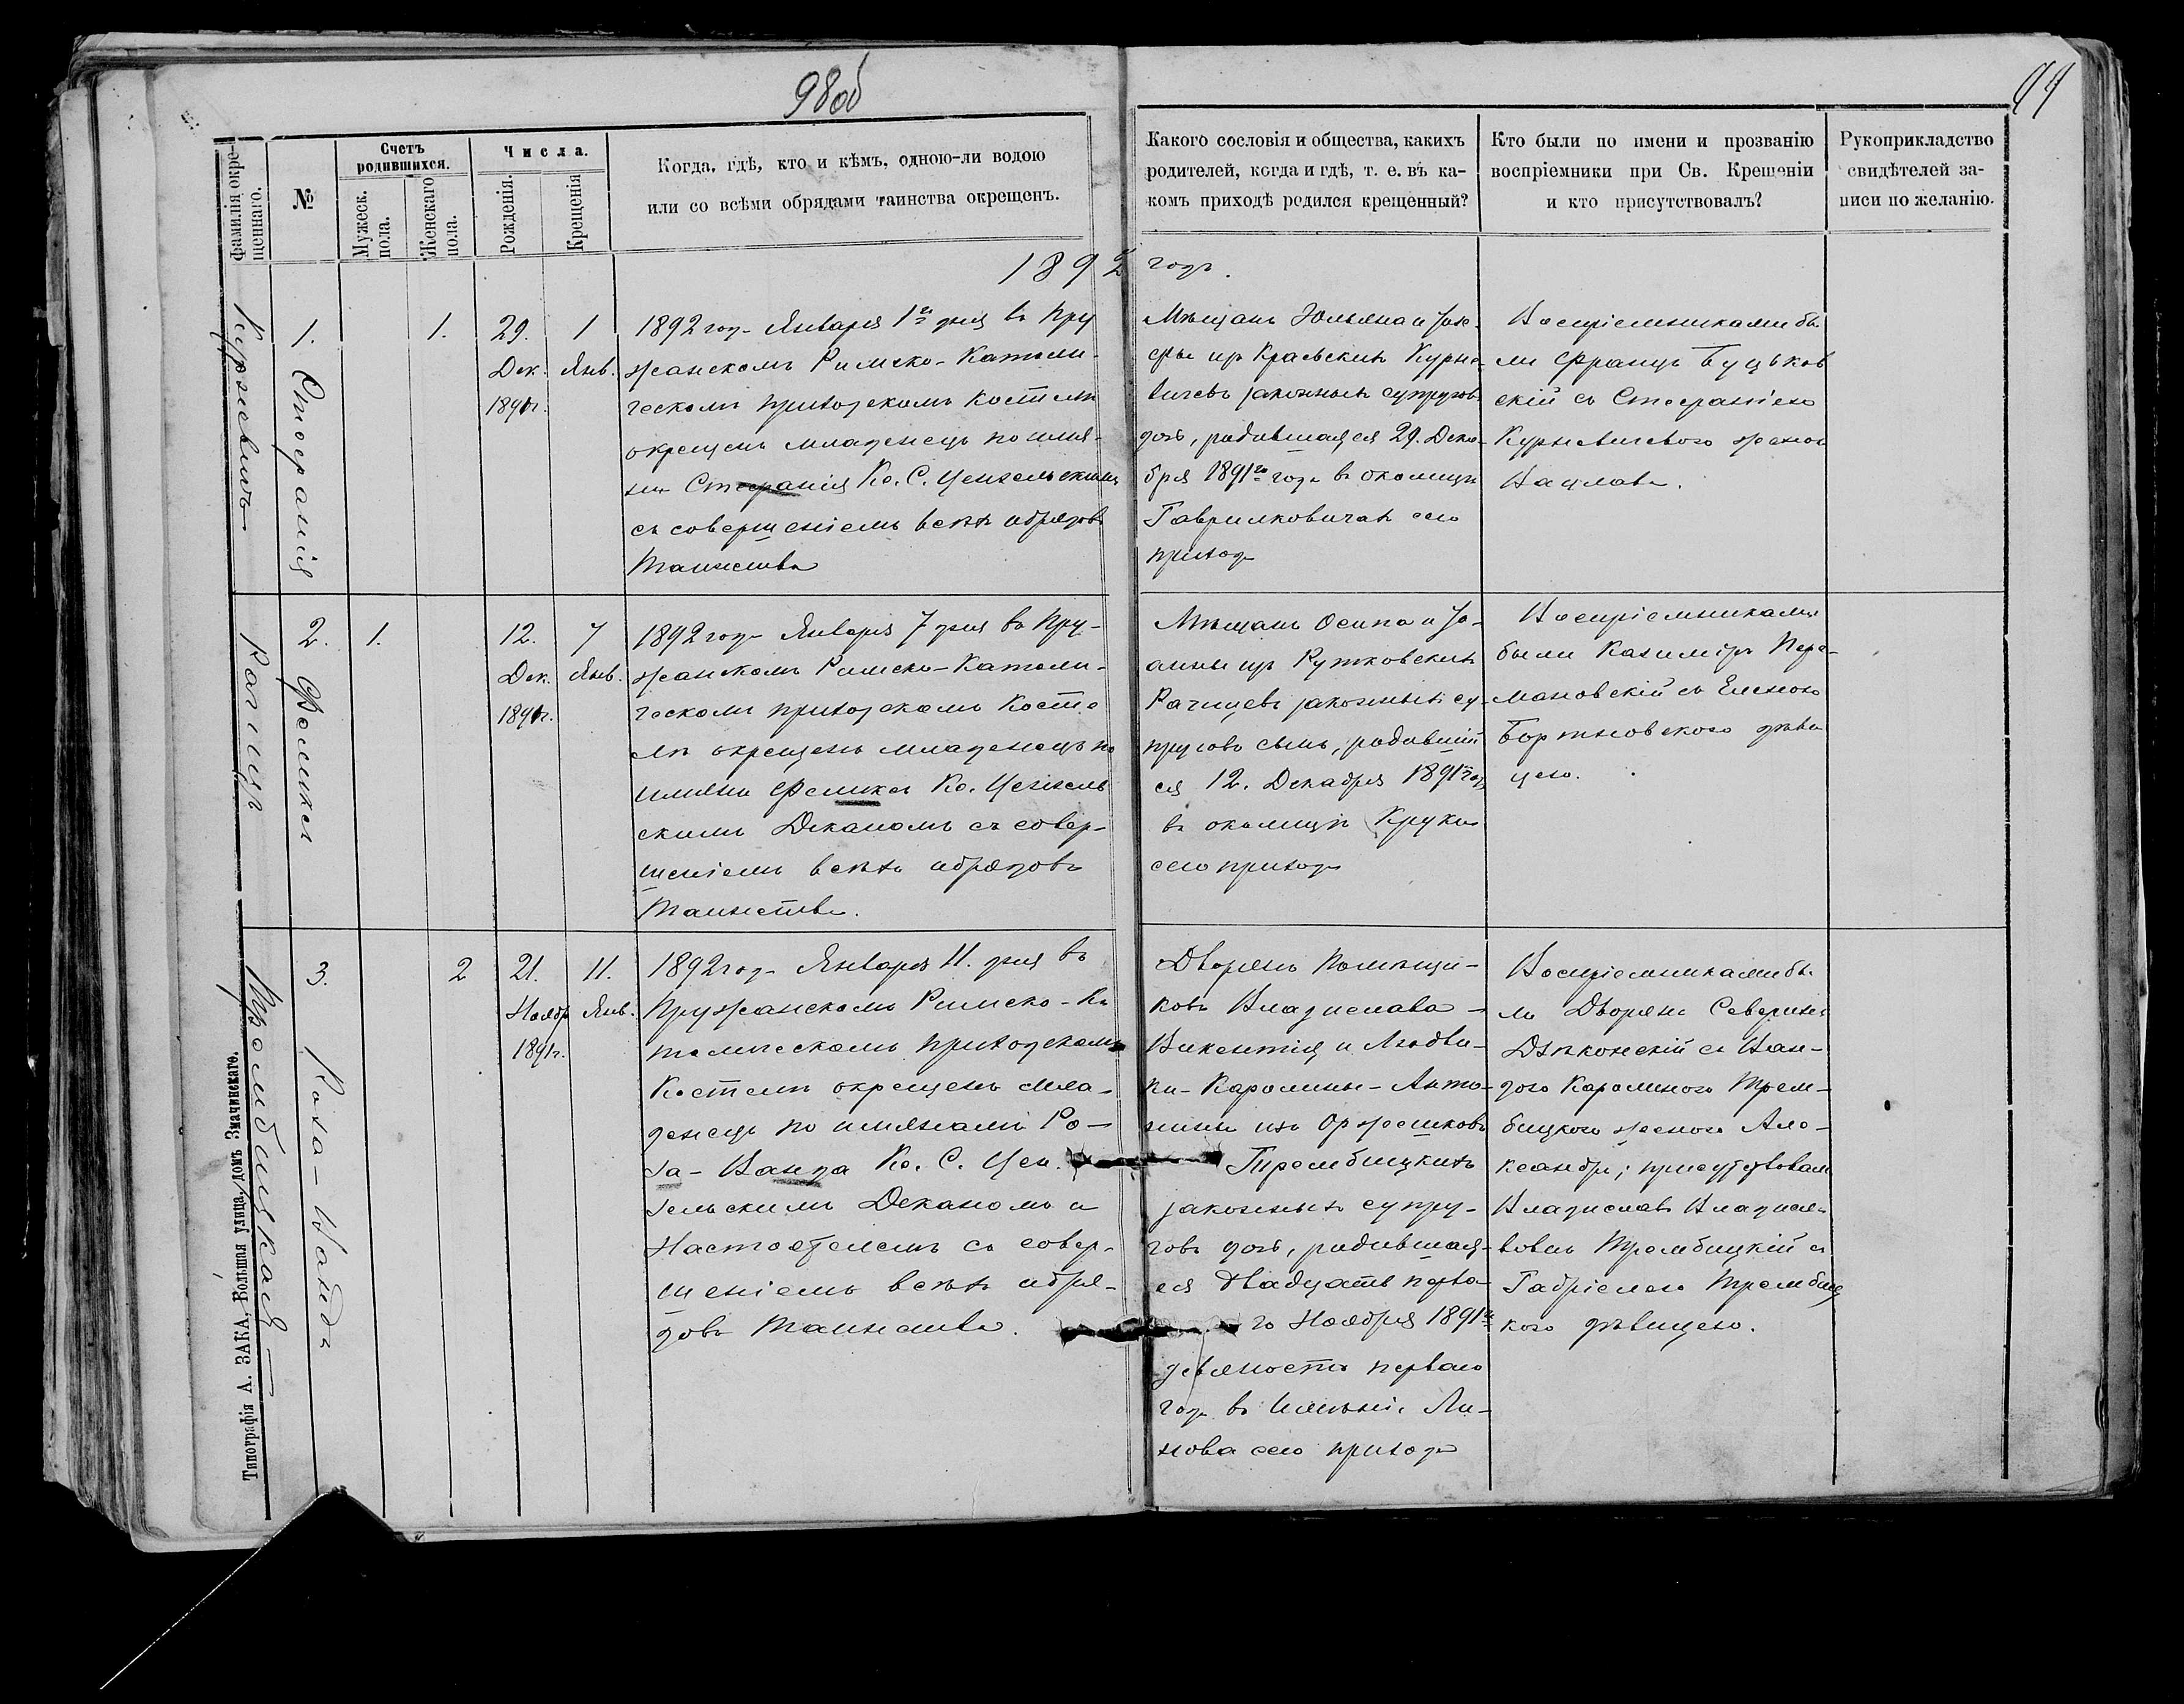 98об
99
фамилія окре-
щеннаго.
№
Счетъ
родившихся.
Мужеск.
пола.
Женскаго
пола.
Числа.
Рожденія.
Крещенія
Когда, гдѣ, кто и кѣмъ, одною-ли водою
или со всѣми обрядами таинства окрещенъ.
Какого сословія и общества, какихъ
родителей, когда и гдѣ, т. е. въ ка-
комъ приходѣ родился крещенный?
Кто были по имени и прозванію
воспріемники при Св. Крещеніи
и кто присутствовалъ?
Рукоприкладство
свидѣтелей за-
писи по желанію.
1892 годъ.
Курневичъ
1.
Стефанія
1.
29.
Дек.
1891г.
1
Янв.
1892 года Января 1го дня въ Пру
жанскомъ Римско-Католи-
ческомъ приходскомъ костелѣ
окрещенъ младенецъ по имя-
ни Стефанія Кс. С. Ценгельскимъ
съ совершеніемъ всѣхъ обрядовъ
Таинства
Мѣщанъ Юльяна и Юзе-
фы изъ Кральскихъ Курне-
вичевъ законныхъ супруговъ
дочь, родившаяся 29. Дека-
бря 1891го года въ околицѣ
Гаврилковичахъ сего
прихода
Воспріемниками бы-
ли Францъ Буцьков
скій съ Стефаніею
Курневичевою женою
Вацлава.
Рагицъ
2.
Феликсъ
1.
12.
Дек.
1891г.
7
Янв.
1892 года Января 7 дня въ Пру-
жанскомъ Римско-Католи-
ческомъ приходскомъ Косте
лѣ окрещенъ младенецъ по
имяни Феликсъ Кс. Ценгель
скимъ Деканомъ съ совер-
шеніемъ всѣхъ обрядовъ
Таинства.
Мѣщанъ Осипа и Іо-
анны изъ Рутковскихъ
Рагицевъ законныхъ су-
пруговъ сынъ, родившій
ся 12. Декабря 1891 года
въ околицѣ Круки
сего прихода
Воспріемниками
были Казиміръ Пере-
мановскій съ Еленою
Бортновскою дѣви
цею.
Трембицкая
3.
Роза-Ванда
2
21.
Ноябр
1891г.
11.
Янв.
1892 года Января 11. дня въ
Пружанскомъ Римско-Ка
толическомъ приходскомъ
Костелѣ окрещенъ мла-
денецъ по имянамъ Ро-
за-Ванда Кс. С. Цен
гельскимъ Деканомъ и
Настоятелемъ съ совер-
шеніемъ всѣхъ обря-
довъ Таинства.
Дворянъ Помѣщи-
ковъ Владислава-
Викентія и Людви-
ки-Каролины-Анто-
нины изъ Оржешковъ
Трембицкихъ
законныхъ супру-
говъ дочь, родившая-
ся Двадцать перва-
го Ноября 1891го
девяноста перваго
года въ Имѣніи Ли-
нова сего прихода
Воспріемниками бы-
ли Дворяне Северинъ
Дзѣконскій съ Ван-
дою Каролиною Трем-
бицкою женою Але-
ксандра; присутствовали
Владиславъ Владисла-
вовъ Трембицкій съ
Габріелею Трембиц
кою дѣвицею.
Типографія А. ЗАКА, Большая улица, домъ Значинскаго.